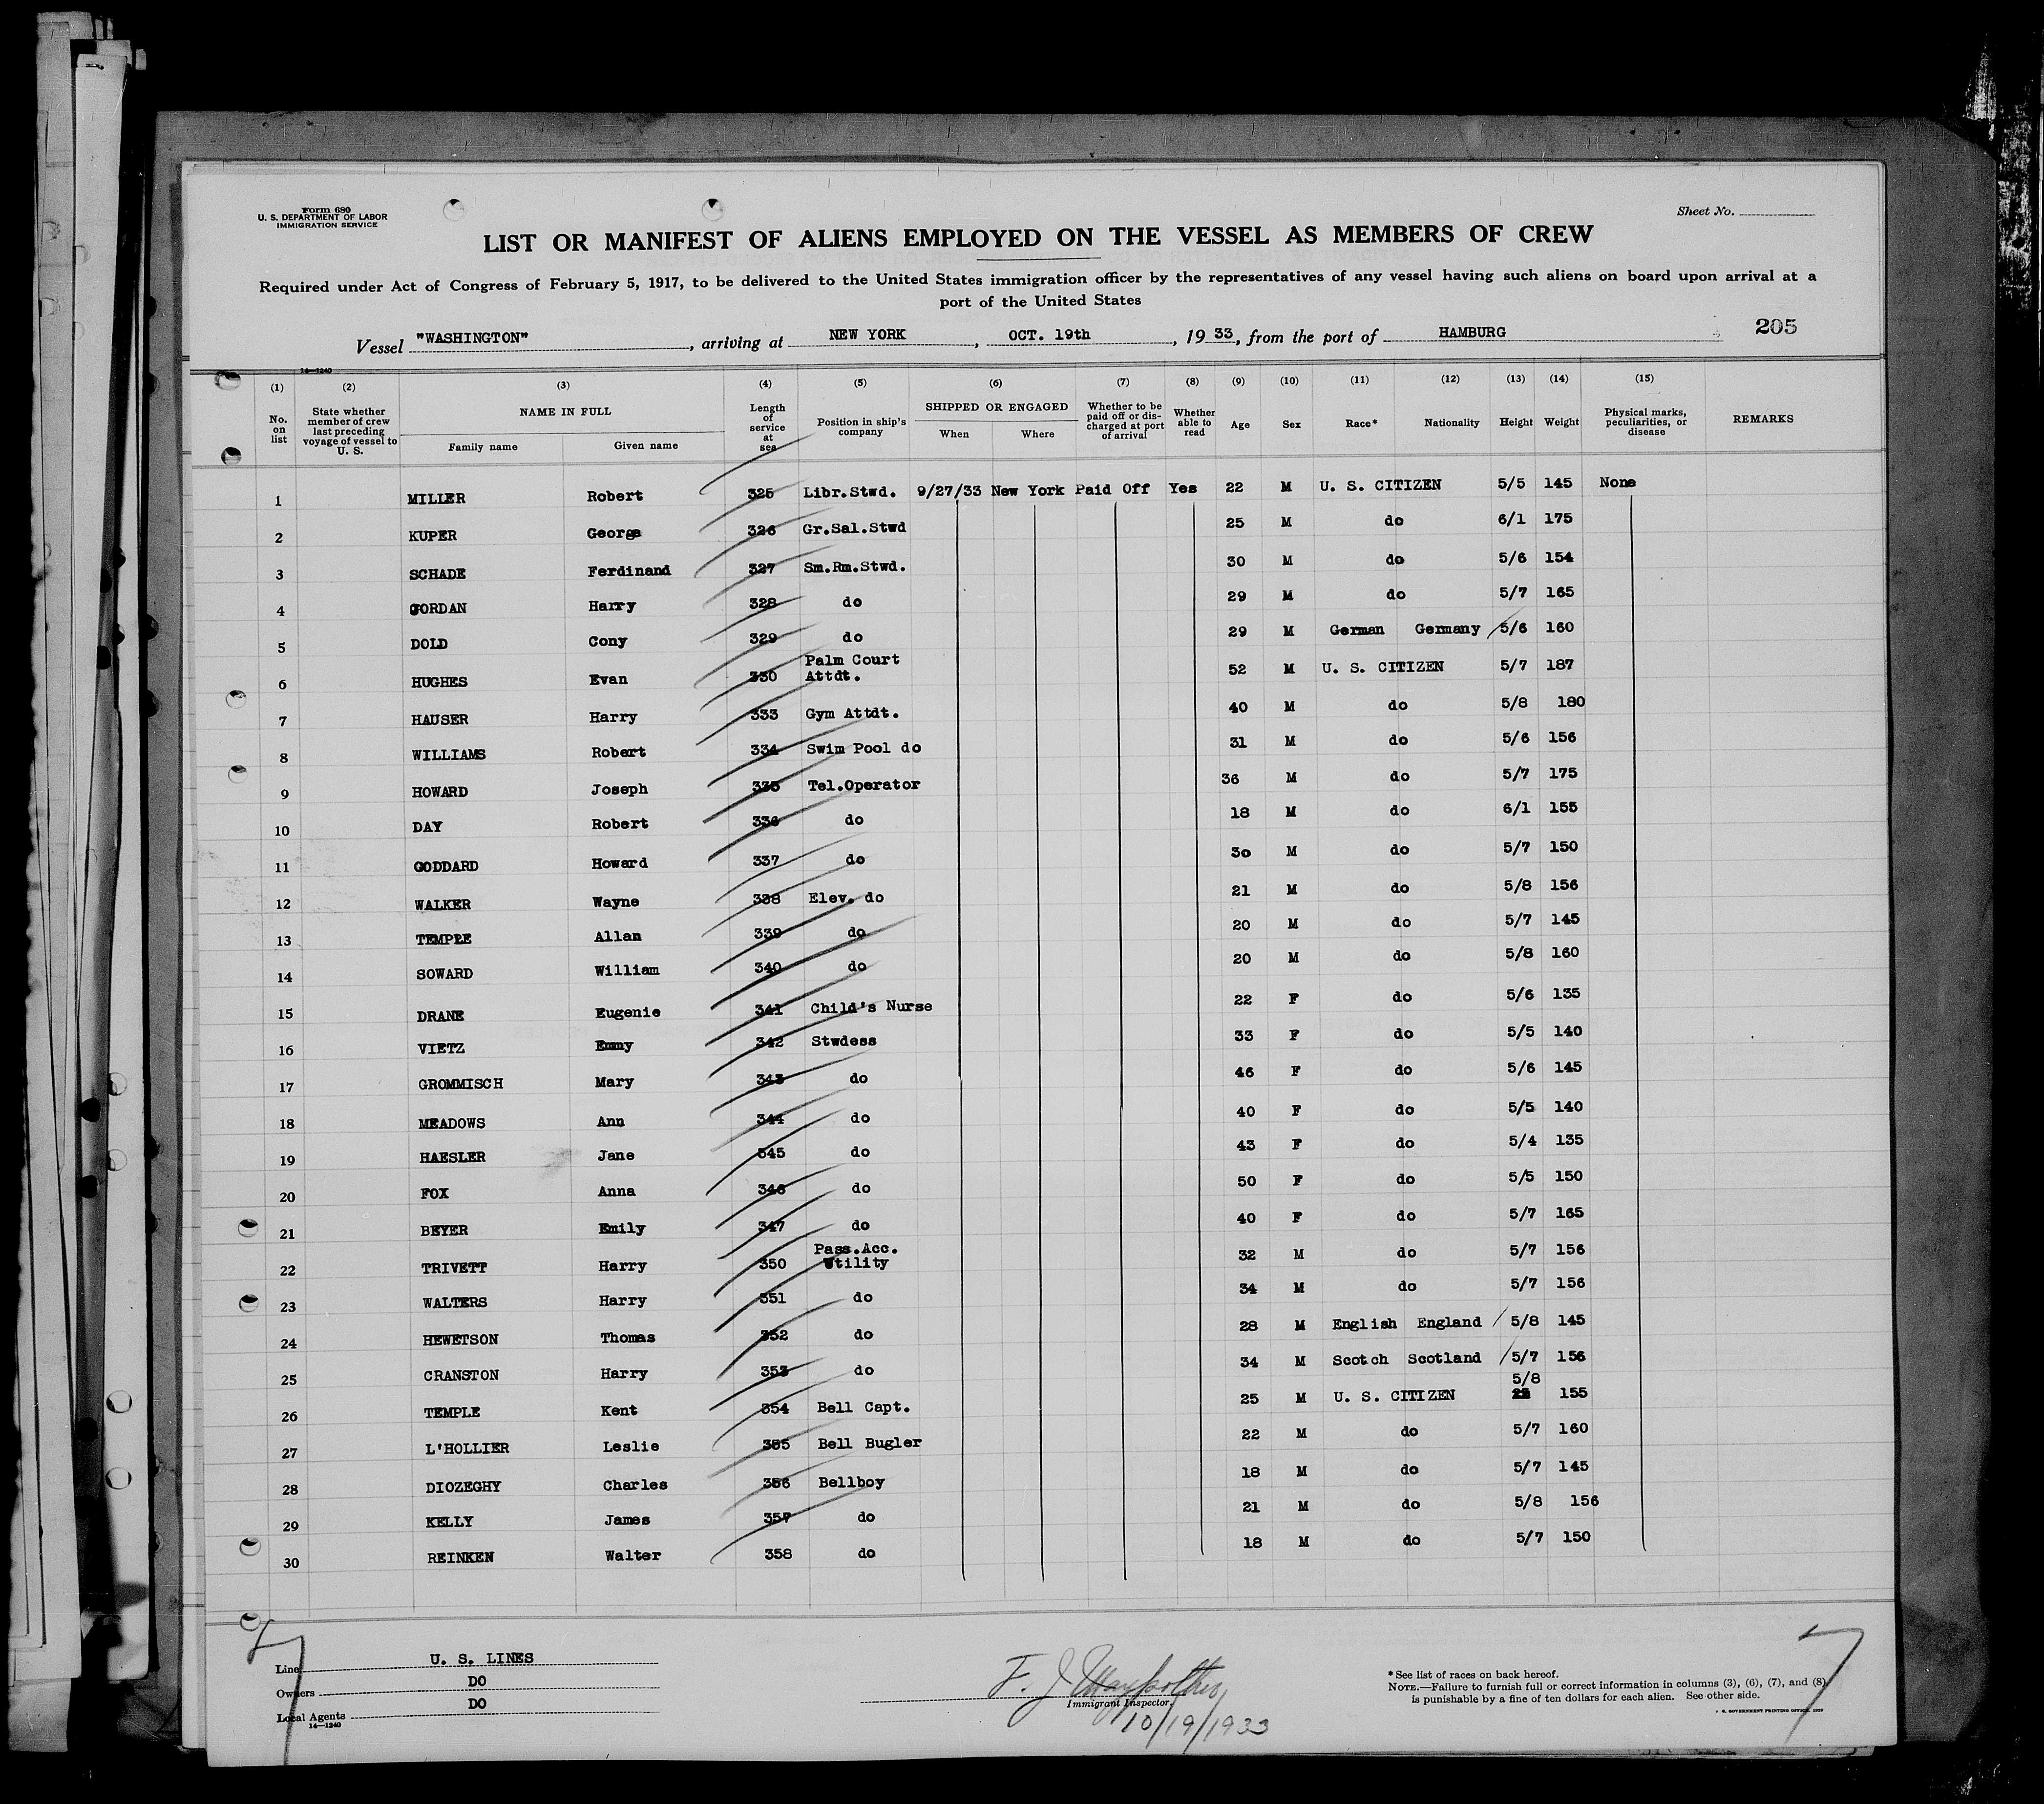 Form 680
U. S. DEPARTMENT OF LABOR
IMMIGRATION SERVICE
Sheet No.
LIST OR MANIFEST OF ALIENS EMPLOYED ON THE VESSEL AS MEMBERS OF CREW
Required under Act of Congress of February 5, 1917, to be delivered to the United States immigration officer by the representatives of any vessel having such aliens on board upon arrival at a
port of the United States
Vessel "WASHINGTON", arriving at NEW YORK, OCT. 19th, 1933, from the port of HAMBURG 205
14—1240
(1) (2) (3) (4) (5) (6) (7) (8) (9) (10) (11) (12) (13) (14) (15)
No. on list State whether member of crew last preceding voyage of vessel to U. S. NAME IN FULL Family name Given name Length of service at sea Position in ship's company SHIPPED OR ENGAGED When Where Whether to be paid off or discharged at port of arrival Whether able to read Age Sex Race* Nationality Height Weight Physical marks, peculiarities, or disease REMARKS
1 MILLER Robert 325 Libr.Stwd. 9/27/33 New York Paid Off Yes 22 M U. S. CITIZEN 5/5 145 None
2 KUPER George 326 Gr.Sal.Stwd 25 M do 6/1 175
3 SCHADE Ferdinand 327 Sm.Rm.Stwd. 30 M do 5/6 154
4 JORDAN Harry 328 do 29 M do 5/7 165
5 DOLD Cony 329 do 29 M German Germany 5/6 160
6 HUGHES Evan 330 Palm Court Attdt. 52 M U. S. CITIZEN 5/7 187
7 HAUSER Harry 333 Gym Attdt. 40 M do 5/8 180
8 WILLIAMS Robert 334 Swim Pool do 31 M do 5/6 156
9 HOWARD Joseph 335 Tel.Operator 36 M do 5/7 175
10 DAY Robert 336 do 18 M do 6/1 155
11 GODDARD Howard 337 do 30 M do 5/7 150
12 WALKER Wayne 338 Elev. do 21 M do 5/8 156
13 TEMPLE Allan 339 do 20 M do 5/7 145
14 SOWARD William 340 do 20 M do 5/8 160
15 DRANE Eugenie 341 Child's Nurse 22 F do 5/6 135
16 VIETZ Emmy 342 Stwdess 33 F do 5/5 140
17 GROMMISCH Mary 343 do 46 F do 5/6 145
18 MEADOWS Ann 344 do 40 F do 5/5 140
19 HAESLER Jane 345 do 43 F do 5/4 135
20 FOX Anna 346 do 50 F do 5/5 150
21 BEYER Emily 347 do 40 F do 5/7 165
22 TRIVETT Harry 350 Pass.Acc. Utility 32 M do 5/7 156
23 WALTERS Harry 351 do 34 M do 5/7 156
24 HEWETSON Thomas 352 do 28 M English England 5/8 145
25 CRANSTON Harry 353 do 34 M Scotch Scotland 5/7 156
26 TEMPLE Kent 354 Bell Capt. 25 M U. S. CITIZEN 5/8 155
27 L'HOLLIER Leslie 355 Bell Bugler 22 M do 5/7 160
28 DIOZEGHY Charles 356 Bellboy 18 M do 5/7 145
29 KELLY James 357 do 21 M do 5/8 156
30 REINKEN Walter 358 do 18 M do 5/7 150
Line U. S. LINES
Owners DO
Local Agents DO
14—1240
F. J.
Immigrant Inspector.
10/19/1933
*See list of races on back hereof.
NOTE.—Failure to furnish full or correct information in columns (3), (6), (7), and (8)
is punishable by a fine of ten dollars for each alien. See other side.
7 7